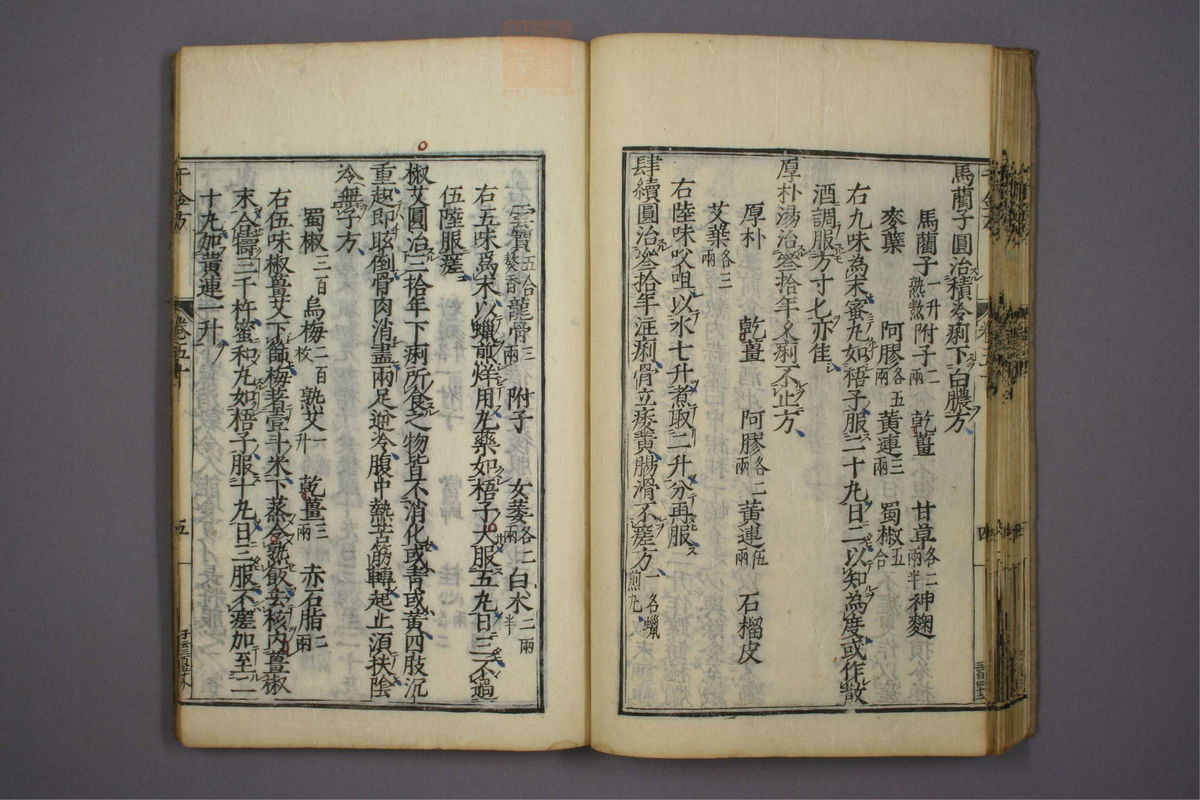 馬藺子圓治積冷痢下白膿方
馬藺子一升熟熬附子二兩 乾薑 甘草各二兩半神麴
麥蘗 阿膠各五兩黃連三兩 蜀椒五合
右九味為末蜜丸如梧子服二十丸日二以知為度或作散
酒調服方寸匕亦佳
厚朴湯治叄拾年久痢不止方
厚朴 乾薑 阿膠各二兩黃連伍兩 石榴皮
艾葉各三兩
右陸味㕮咀以水七升煮取二升分再服
肆續圓治叄拾年注痢骨立痿黃腸滑不瘥方一名蠟煎丸
雲實五合熬香龍骨三兩 附子 女萎各二兩白朮二兩半
右五味為末以蠟煎烊用丸藥如梧子大服五丸日三不過
伍陸服瘥
椒艾圓治三拾年下痢所食之物皆不消化或青或黃四肢沉
重起即眩倒骨肉消盡兩足逆冷腹中熱苦筋轉起止須扶陰
冷無子方
蜀椒三百 烏梅二百枚 熟艾一升 乾薑三兩 赤石脂二兩
右伍味椒薑艾下篩梅著壹斗米下蒸令熟飯去核內薑椒
末合擣三千杵蜜和丸如梧子服十丸日三服不瘥加至二
十丸加黃連一升
千金方
卷五十
五